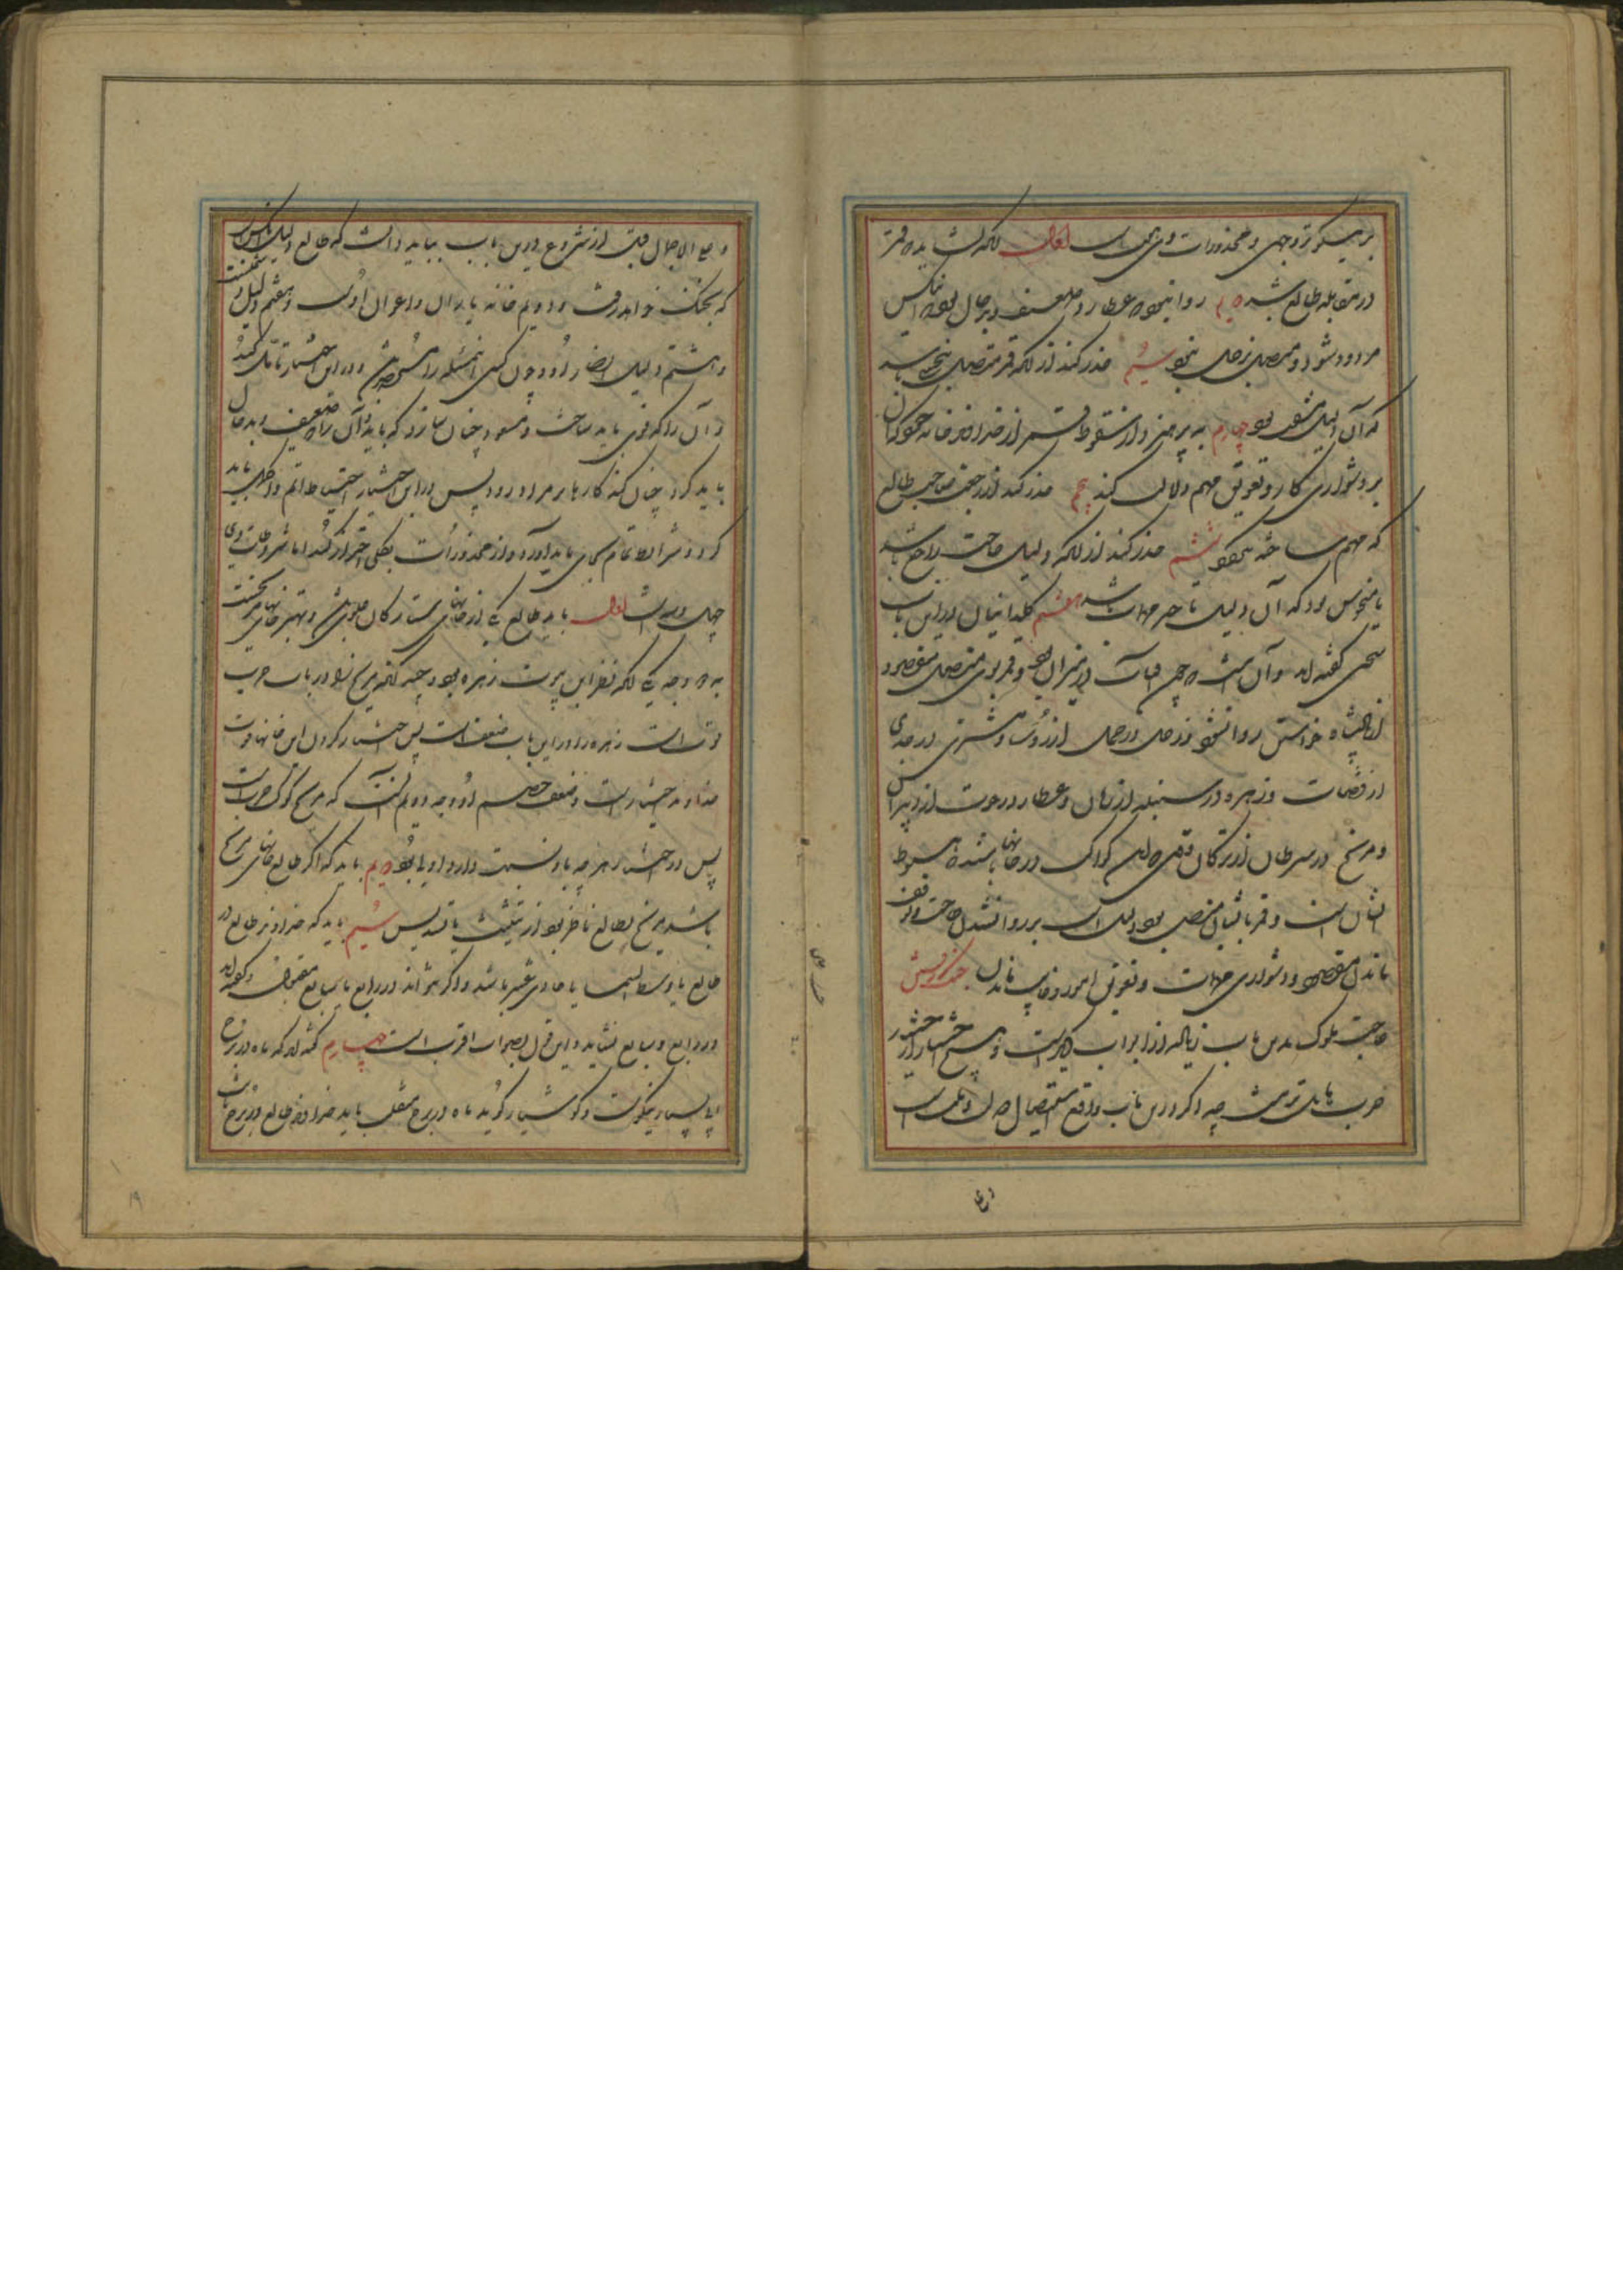 بر نیکوترین وجهی و محذورات وی است اول آنکه نشاید که قمر
در مقابله طالع باشد دویم روا نبود که عطارد ضعیف و بدحال بود که آنکس
مردود شود و متصل بزحل نبود سیم حذر کنند از آنکه قمر متصل بنحسی باشد
که آن دلیل بود چهارم بپرهیزد از سقوط قمر از خداوند خانه خود که آن
بر دشواری کار و تعویق مهم دلالت کند پنجم حذر کند از رجعت صاحب طالع
که مهم ساخته نگردد ششم حذر کنند از آنکه دلیل حاجت راجع باشد
یا منحوس بود که آن دلیل تاخیر مهمات باشد هفتم کلدانیان در این باب
سخنی گفته‌اند و آن است که چون آفتاب در میزان بود و قمر بوی متصل مقصود
از پادشاه خواستن روا نشود و زحل در حمل از رؤسا و مشتری در جدی
از قضات و زهره در سنبله از زنان و عطارد در حوت از دبیران
و مریخ در سرطان از ترکان وقتی که این کواکب در خانها باشند که هبوط
ایشان است و قمر بایشان متصل بود دلیل است بر روا نشدن حاجت و توقف
ماندن مقصود و دشواری مهمات و تعویق امور و خایب ماندن جنگ
حاجت ملوک بدین باب زیاده از ابواب دیگر است و هیچ اختیار از اختیار
حرب نازکتر نیست چه اگر در این باب واقع
و علی الاجمال قبل از شروع در این باب بباید دانست که طالع دلیل آنکس است
که بجنگ خواهد رفت و دویم خانه یاران و اعوان اوست و هفتم دلیل خصمست
و هشتم دلیل انصار او و چون کسی این مسئله را و در این اختیار تامل کند
و آن را که قوی باید ساخت و مسعود چنان سازد که باید و آن را که ضعیف و بدحال
باید کرد چنان کند کارها بر مراد رود پس در این اختیار احتیاط اتم و اکمل باید
کرد و شرایط تمام بجای باید آورد و از محذورات بکلی احتراز کند اما مشروطات وی
چهل و است اول باید طالع یکی از خانهای ستارگان علوی باشد و بهترین خانهای مریخست
بدو وجه یکی آنکه نظر این بیوت زهره بود و چنانکه مریخ را در باب حرب
قوت است زهره را در این باب ضعف است پس اختیار کردن این خانها قوت
خداوند اختیار است و ضعف خصم او و وجه دویم آنست که مریخ کوکب حرب است
پس در اختیار هر چه باو نسبت دارد اولی بود دویم باید که اگر طالع خانهای مریخ
باشد مریخ بطالع ناظر بود از تثلیث یا تسدیس سیم باید که خداوند طالع در
طالع یا وسط السما یا حادی عشر باشد و اگر نتواند در رابع یا سابع و گفته‌اند
در رابع و سابع نشاید و این قول بصواب اقرب است چهارم گفته‌اند که ماه در برج
آبی بسیار نیکوست و کوشیار گوید ماه در برج منقلب باید خداوند طالع در برج ثابت
۱۹